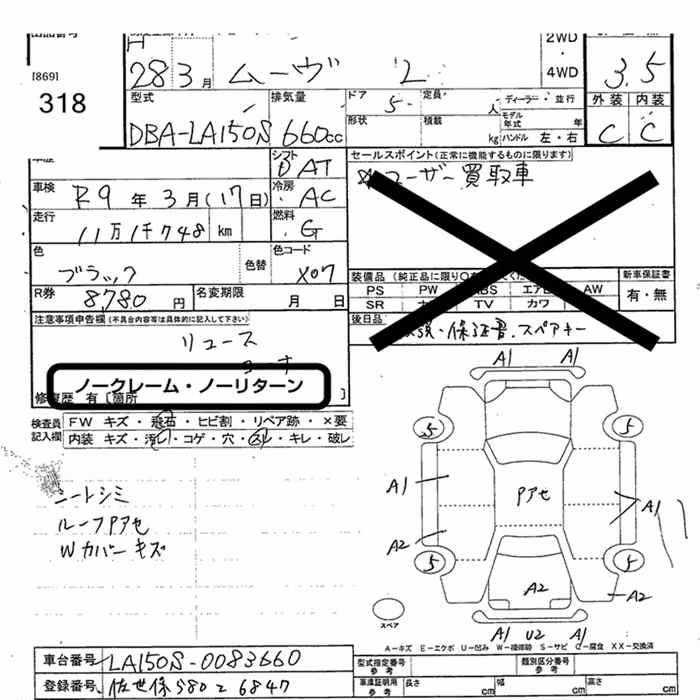 [869]
318
H
28 3月 ムーヴ 2
2WD
・
4WD
3.5
型式 排気量 ドア 定員 ディーラー・並行
DBA-LA150S 660cc 5 人
形状 積載 kg モデル年式 年
ハンドル 左・右
外装 内装
C C
シフト
DAT
車検 R9年3月(17日)
冷房 AC
走行 11万1千748 km
燃料 G
色 ブラック 色替
色コード X07
R券 8780円 名変期限 月 日
セールスポイント(正常に機能するものに限ります)
ユーザー買取車
装備品 (純正品に限り
新車保証書
有・無
PS PW ABS AW
SR TV カワ
後日品 ・保証書、スペアキー
注意事項申告欄(不具合内容等は具体的に記入して下さい)
リユース
コーナ
ノークレーム・ノーリターン
修復歴 有 [箇所 ]
検査員
記入欄
FW キズ・飛石・ヒビ割・リペア跡・×要
内装 キズ・汚レ・コゲ・穴・スレ・キレ・破レ
シートシミ
ルーフPアセ
Wカバーキズ
A1 A1
5 5
A1 Pアセ A1
A2
5 5
A2 A2
A1 U2 A1
スペア
A－キズ E－エクボ U－凹み W－補修跡 S－サビ C－腐食 XX－交換済
車台番号 LA150S-0083660
登録番号 佐世保580 6847
型式指定番号 参考
類別区分番号 参考
車庫証明用 参考 長さ cm 幅 cm 高さ cm